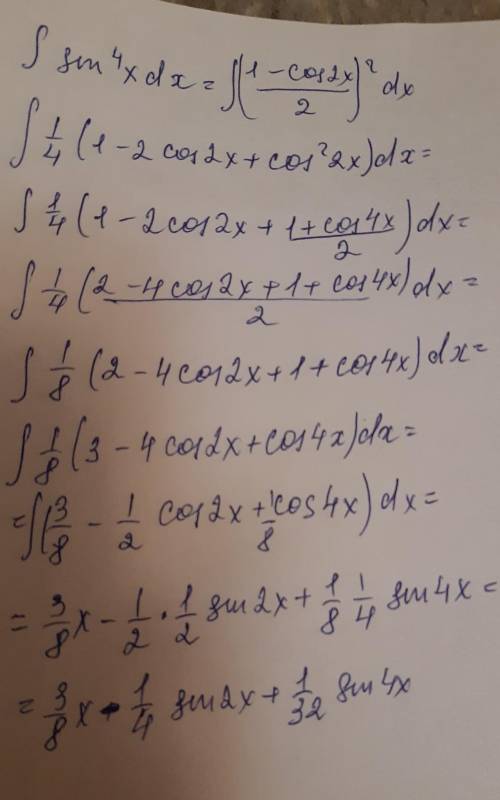 ∫ sin⁴x dx = ∫((1 - cos2x)/2)² dx
∫ 1/4 (1 - 2 cos2x + cos²2x) dx =
∫ 1/4 (1 - 2cos2x + (1 + cos4x)/2) dx =
∫ 1/4 ((2 - 4cos2x + 1 + cos4x)/2) dx =
∫ 1/8 (2 - 4cos2x + 1 + cos4x) dx =
∫ 1/8 (3 - 4cos2x + cos4x) dx =
= ∫(3/8 - 1/2 cos2x + 1/8 cos4x) dx =
= 3/8 x - 1/2 · 1/2 sin2x + 1/8 1/4 sin4x =
= 3/8 x - 1/4 sin2x + 1/32 sin4x